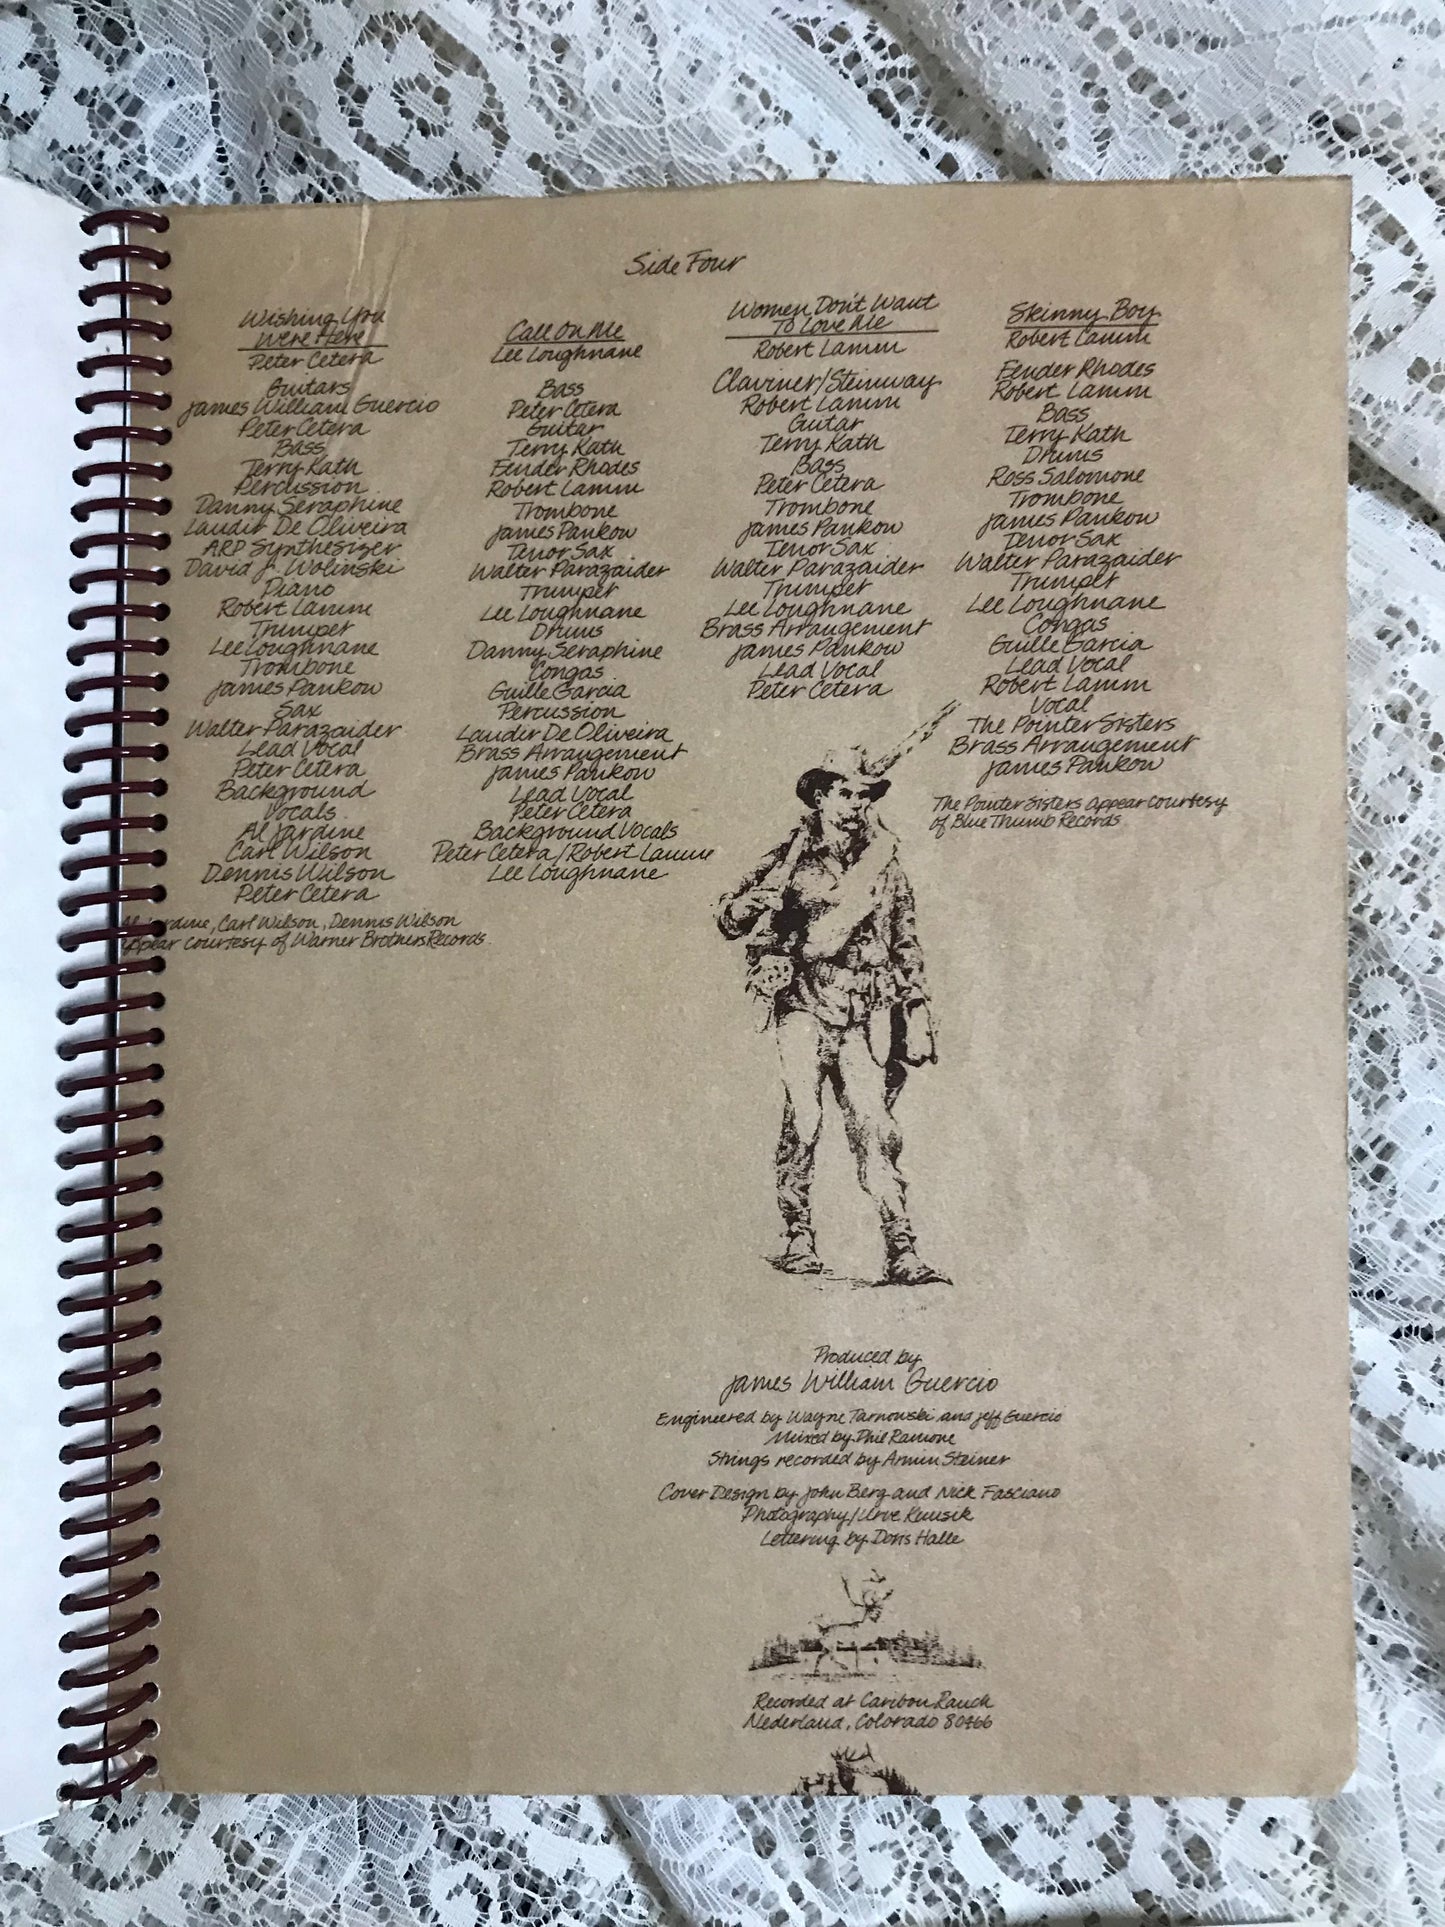 Side Four
Wishing You
Were Here
Peter Cetera
Guitars
James William Guercio
Peter Cetera
Bass
Terry Kath
Percussion
Danny Seraphine
Laudir De Oliveira
ARP Synthesizer
David J. Wolinski
Piano
Robert Lamm
Trumpet
Lee Loughnane
Trombone
James Pankow
Sax
Walter Parazaider
Lead Vocal
Peter Cetera
Background
Vocals
Al Jardine
Carl Wilson
Dennis Wilson
Peter Cetera
Al Jardine, Carl Wilson, Dennis Wilson
appear courtesy of Warner Brothers Records.
Call On Me
Lee Loughnane
Bass
Peter Cetera
Guitar
Terry Kath
Fender Rhodes
Robert Lamm
Trombone
James Pankow
Tenor Sax
Walter Parazaider
Trumpet
Lee Loughnane
Drums
Danny Seraphine
Congas
Guille Garcia
Percussion
Laudir De Oliveira
Brass Arrangement
James Pankow
Lead Vocal
Peter Cetera
Background Vocals
Peter Cetera/Robert Lamm
Lee Loughnane
Women Don't Want
To Love Me
Robert Lamm
Clavinet/Steinway
Robert Lamm
Guitar
Terry Kath
Bass
Peter Cetera
Trombone
James Pankow
Tenor Sax
Walter Parazaider
Trumpet
Lee Loughnane
Brass Arrangement
James Pankow
Lead Vocal
Peter Cetera
Skinny Boy
Robert Lamm
Fender Rhodes
Robert Lamm
Bass
Terry Kath
Drums
Ross Salomone
Trombone
James Pankow
Tenor Sax
Walter Parazaider
Trumpet
Lee Loughnane
Congas
Guille Garcia
Lead Vocal
Robert Lamm
Vocal
The Pointer Sisters
Brass Arrangement
James Pankow
The Pointer Sisters appear courtesy
of Blue Thumb Records
Produced by
James William Guercio
Engineered by Wayne Tarnowski and Jeff Guercio
Mixed by Phil Ramone
Strings recorded by Armin Steiner
Cover Design by John Berg and Nick Fasciano
Photography/Urve Kuusik
Lettering by Doris Halle
Recorded at Caribou Ranch
Nederland, Colorado 80466